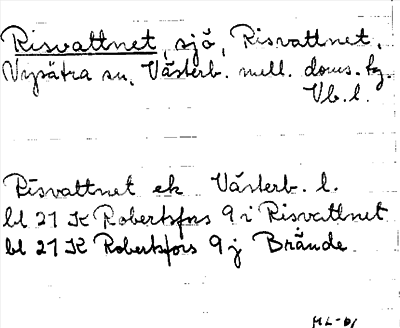 Risvattnet, sjö, Risvattnet,
sn, Västerb. mell. doms. tg.
Vb. l.
Risvattnet ek Västerb. l.
bl 21 K Robertsfors 9 i Risvattnet
bl 21 K Robertsfors 9 j Brände